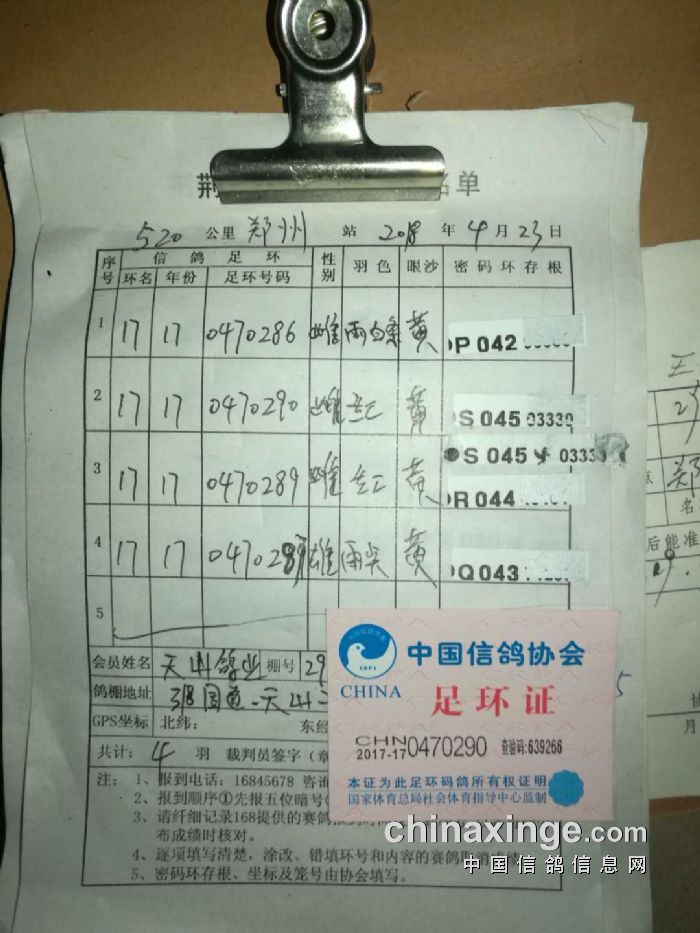 荆 名单
520 公里 郑州 站 2018 年 4 月 23 日
序号 信鸽足环 性别 羽色 眼沙 密码环存根
环名 年份 足环号码
1 17 17 0470286 雌 雨白条 黄 DP 042
2 17 17 0470290 雌 黄 DS 045 03339
S 045 0333
3 17 17 0470289 雌 黄 DR 044
4 17 17 雄 黄 DQ 043
5
会员姓名 天山鸽业 棚号 29
鸽棚地址 318国道 天山
GPS坐标 北纬: 东经
共计: 4 羽 裁判员签字(章
注: 1、报到电话:16845678 咨询
2、报到顺序①先报五位暗号(
3、请纤细记录168提供的赛鸽报到时间
布成绩时核对。
4、逐项填写清楚,涂改、错填环号和内容的赛鸽取消成绩
5、密码环存根、坐标及笼号由协会填写。
中国信鸽协会
CRPA
CHINA
足环证
CHN
2017-17 0470290 查验码:639266
本证为此足环码鸽所有权证明
国家体育总局社会体育指导中心监制
王
郑
名
后能准
月
chinaxinge.com
中国信鸽信息网